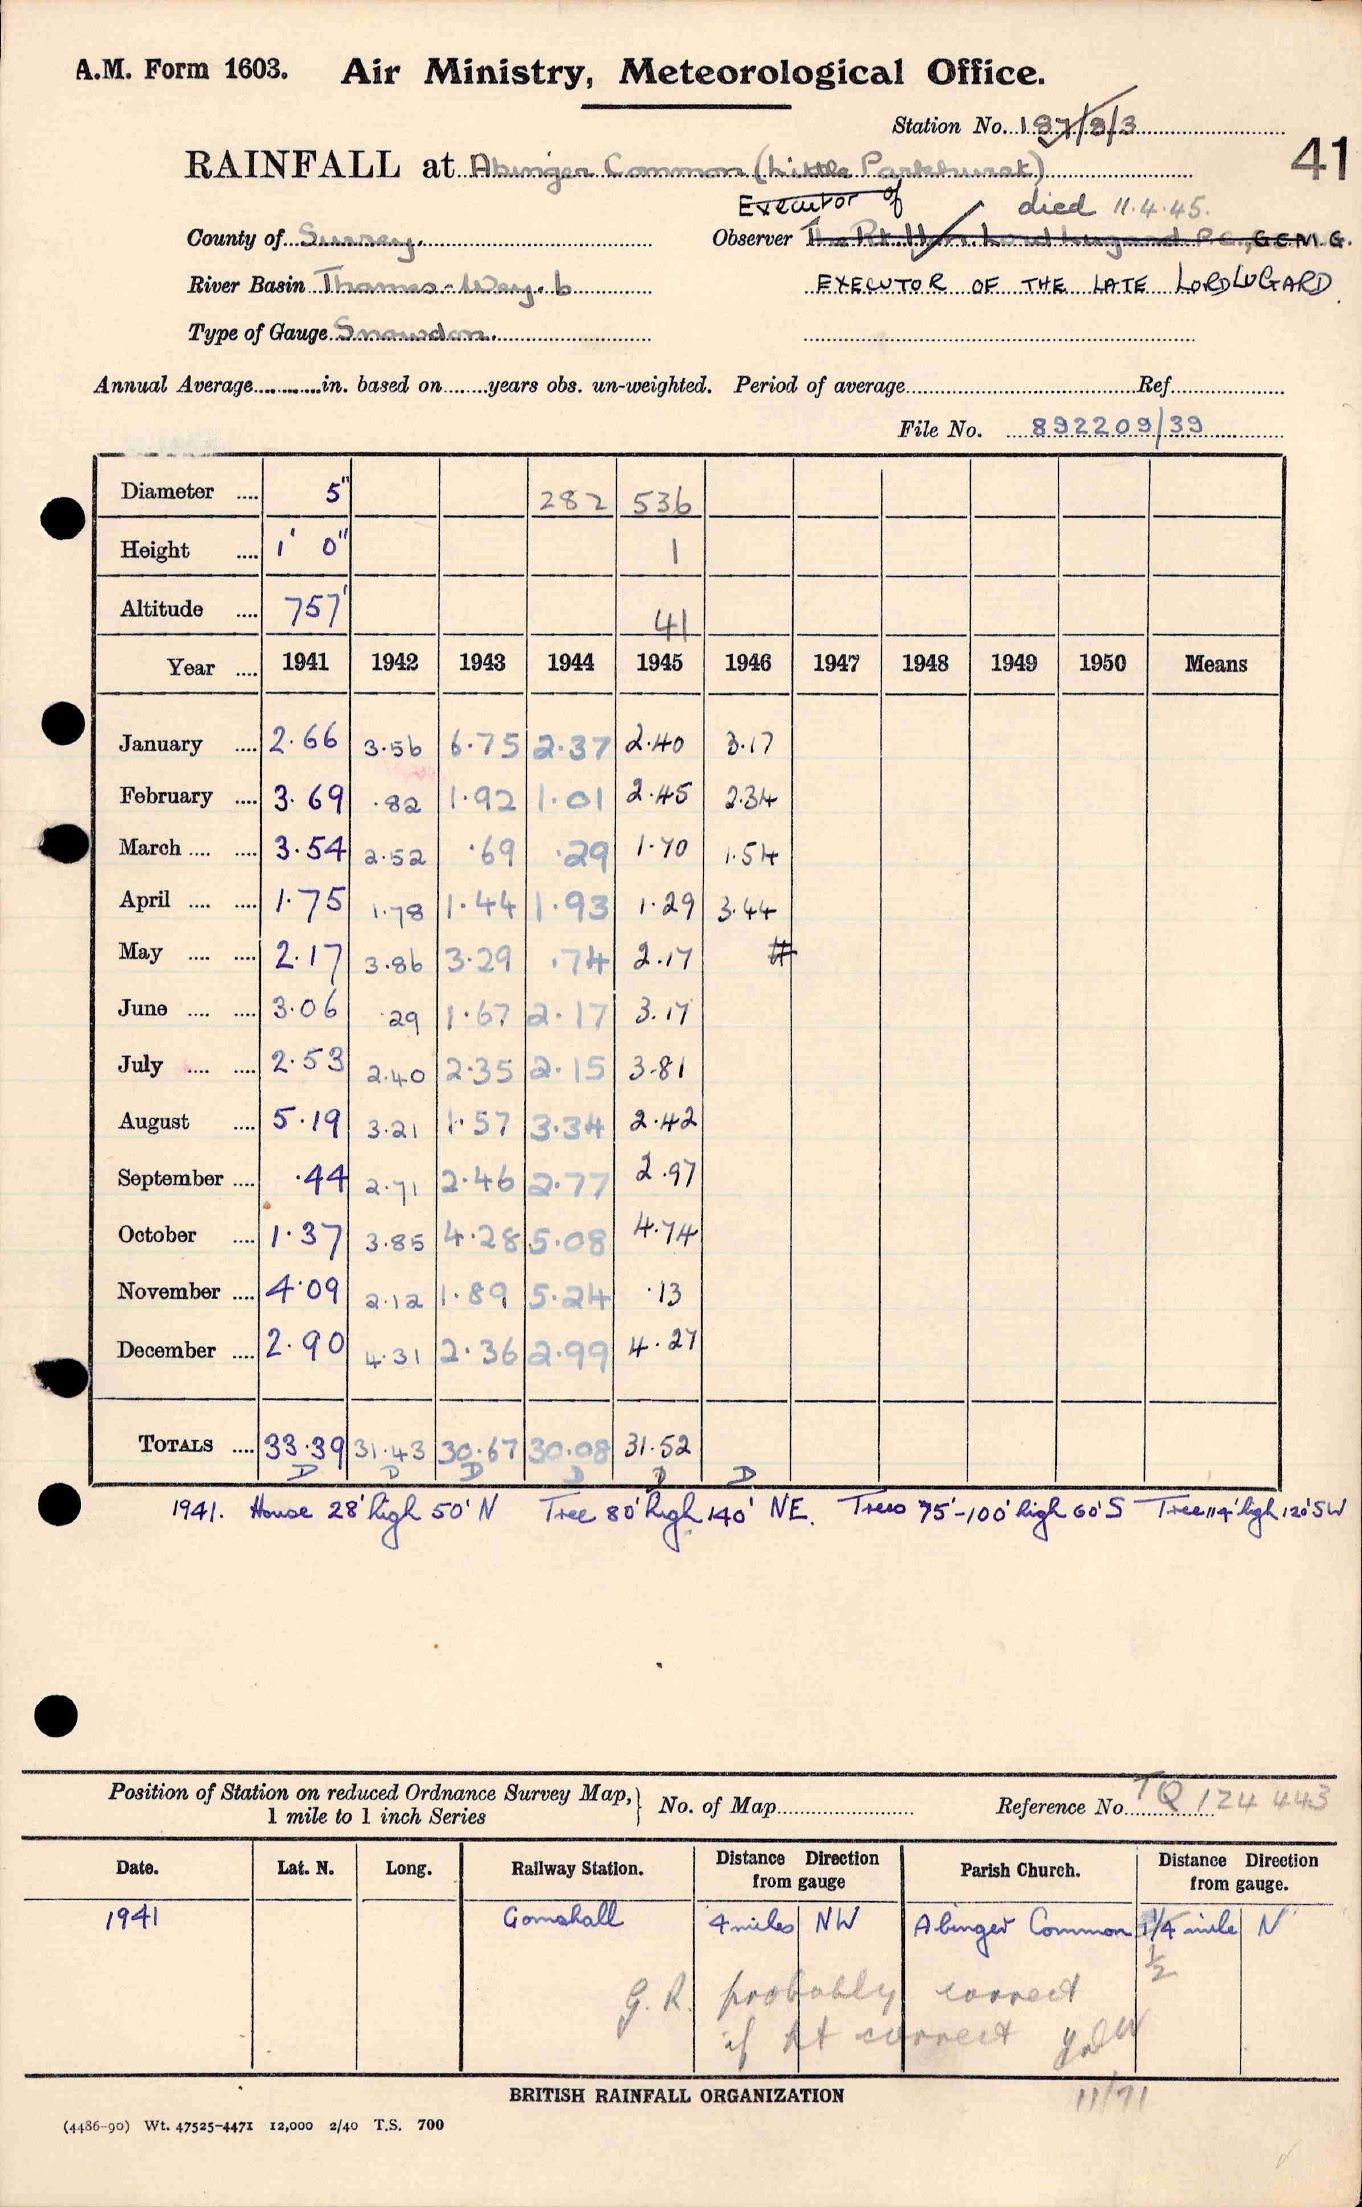 A.M. Form 1603. Air Ministry, Meteorological Office.
Station No. 187/8/3
41
RAINFALL at Abinger Common (Little Parkhurst)
Executor of died 11.4.45.
County of Surrey. Observer The Rt. Hon. Lord Lugard P.C., G.C.M.G.
River Basin Thames-Wey. b EXECUTOR OF THE LATE LORD LUGARD.
Type of Gauge Snowdon.
Annual Average in. based on years obs. un-weighted. Period of average Ref.
File No. 892209/39
Diameter .... 5" 282 536
Height .... 1' 0" 1
Altitude .... 757' 41
Year .... 1941 1942 1943 1944 1945 1946 1947 1948 1949 1950 Means
January .... 2.66 3.56 6.75 2.37 2.40 3.17
February .... 3.69 .82 1.92 1.01 2.45 2.34
March .... .... 3.54 2.52 .69 .29 1.70 1.54
April .... .... 1.75 1.78 1.44 1.93 1.29 3.44
May .... .... 2.17 3.86 3.29 .74 2.17 #
June .... .... 3.06 .29 1.67 2.17 3.17
July .... .... 2.53 2.40 2.35 2.15 3.81
August .... 5.19 3.21 1.57 3.34 2.42
September .... .44 2.71 2.46 2.77 2.97
October .... 1.37 3.85 4.28 5.08 4.74
November .... 4.09 2.12 1.89 5.24 .13
December .... 2.90 4.31 2.36 2.99 4.27
TOTALS .... 33.39 31.43 30.67 30.08 31.52
D D D D D D
1941. House 28' high 50' N Tree 80' high 140' NE. Trees 75'-100' high 60' S Tree 114' high 120' SW
Position of Station on reduced Ordnance Survey Map, 1 mile to 1 inch Series } No. of Map Reference No. TQ 124 443
Date. Lat. N. Long. Railway Station. Distance Direction from gauge Parish Church. Distance Direction from gauge.
1941 Gomshall 4 miles NW Abinger Common 1/4 mile N
1/2
G.R. probably correct
if ht correct
11/71
BRITISH RAINFALL ORGANIZATION
(4486-90) Wt. 47525-4471 12,000 2/40 T.S. 700